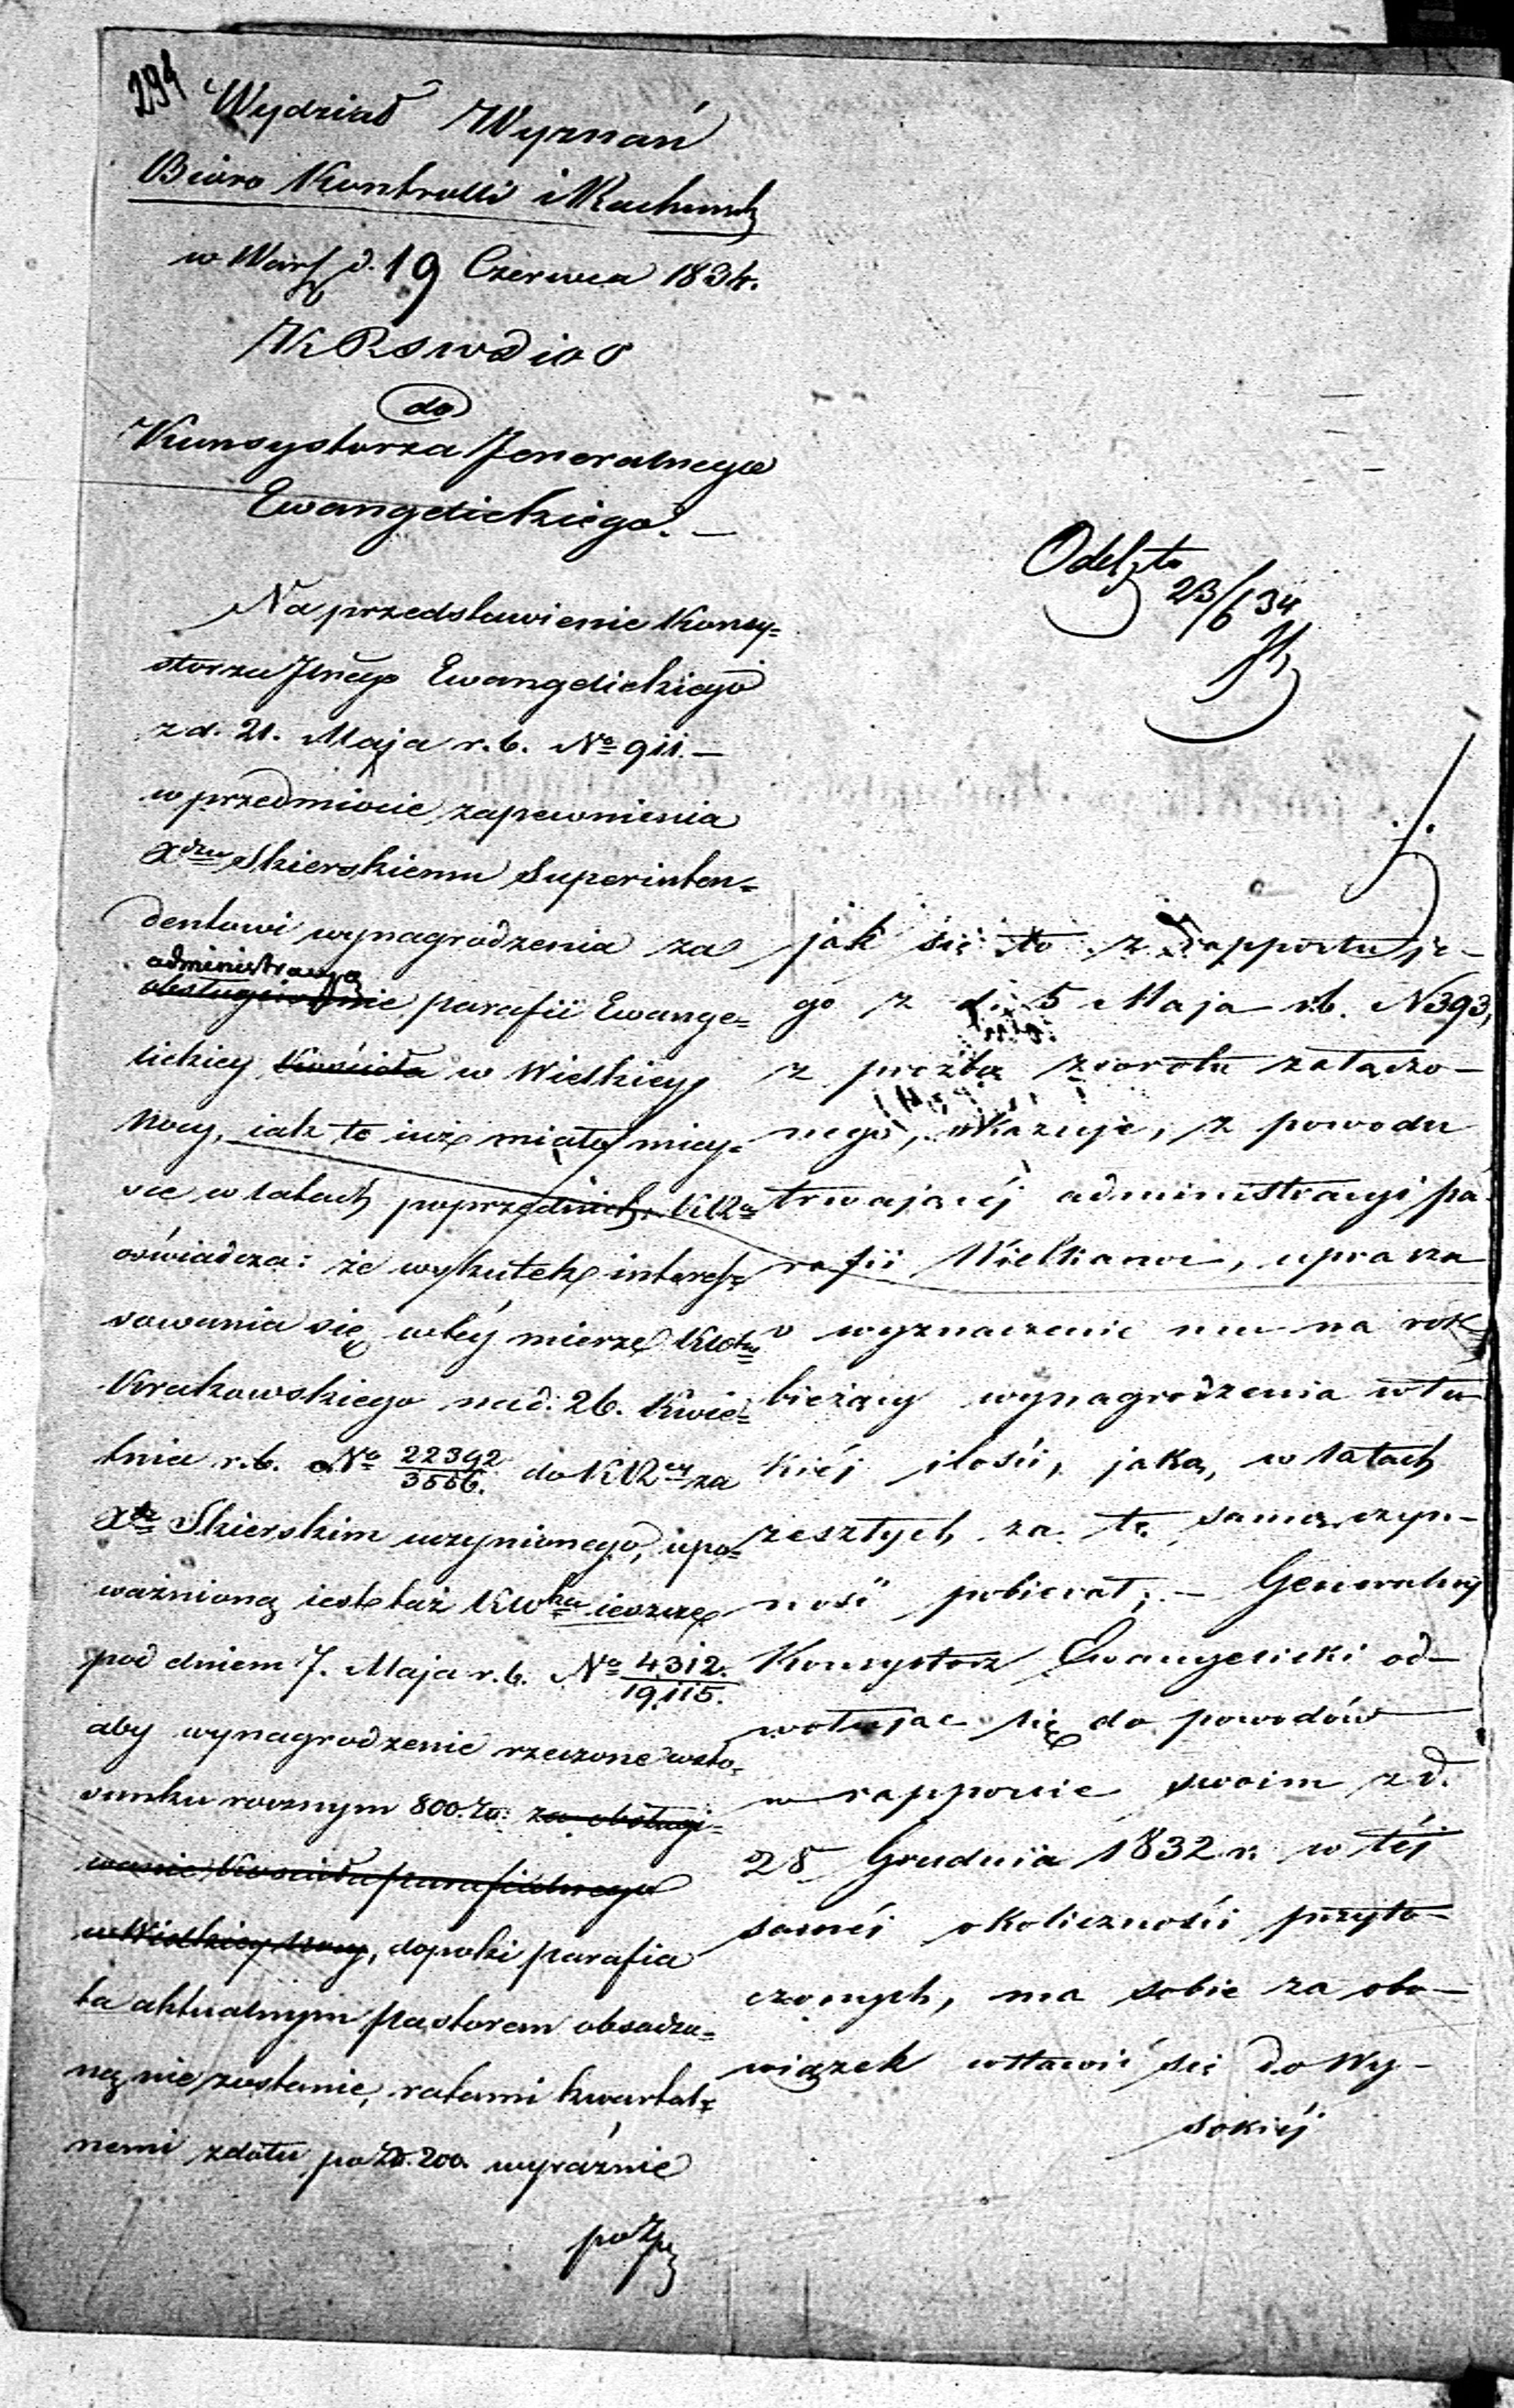 294
Wydział Wyznań
Biuro Kontrolli i Rachunk
w Warsz d. 19 Czerwca 1834.
do
Konsystorza Jeneralnego
Ewangelickiego. —
Na przedstawienie Konsy=
storza Jnego Ewangelickiego
z d. 21. Maja r. b. No 911. —
w przedmiocie zapewnienia
Xdzu Skierskiemu Superinten=
dentowi wynagrodzenia za
administracyą
obsługiwanie parafii Ewange=
lickiey Kościoła w Wielkiey
Nocy, iak to iuż miało miey=
sce w latach poprzednich, KR
oświadcza: że wskutek interes=
sowania się w téy mierze KW
Krakowskiego na d. 26. Kwie=
tnia r. b. No 22392/3556. do KR za
Xdz Skierskim uczynionego, upo=
ważnioną iest taż KW ieszcze
pod dniem 7. Maja r. b. No 4312./19,115.
aby wynagrodzenie rzeczone w sto=
sunku rocznym 800. Zł: za obsługi=
wanie Kościoła parafialnego
w Wielkiey Nocy, dopoki parafia
ta aktualnym pastorem obsadzo=
ną nie zostanie, ratami kwartal=
nemi z dołu po Zł. 200. wyraźnie
po Zł
Odeszło
23/6 34
jak się to z rapportu je-
go z d. 5 Maja r. b. N 393,
z prozbą zwrotu załączo-
nego, okazuje, z powodu
trwającéj administracyi pa-
rafii Wielkanoc, uprasza
o wyznaczenie mu na rok
bieżący wynagrodzenia w ta-
kiéj ilości, jaką, w latach
zeszłych za tę samą czyn-
ność pobierał; — Generalny
Konsystorz Ewangelicki od-
wołując się do powodów
w rapporcie swoim z d.
28 Grudnia 1832 r. w téj
saméj okoliczności przyto-
czonych, ma sobie za obo-
wiązek wstawić się do Wy-
sokiéj